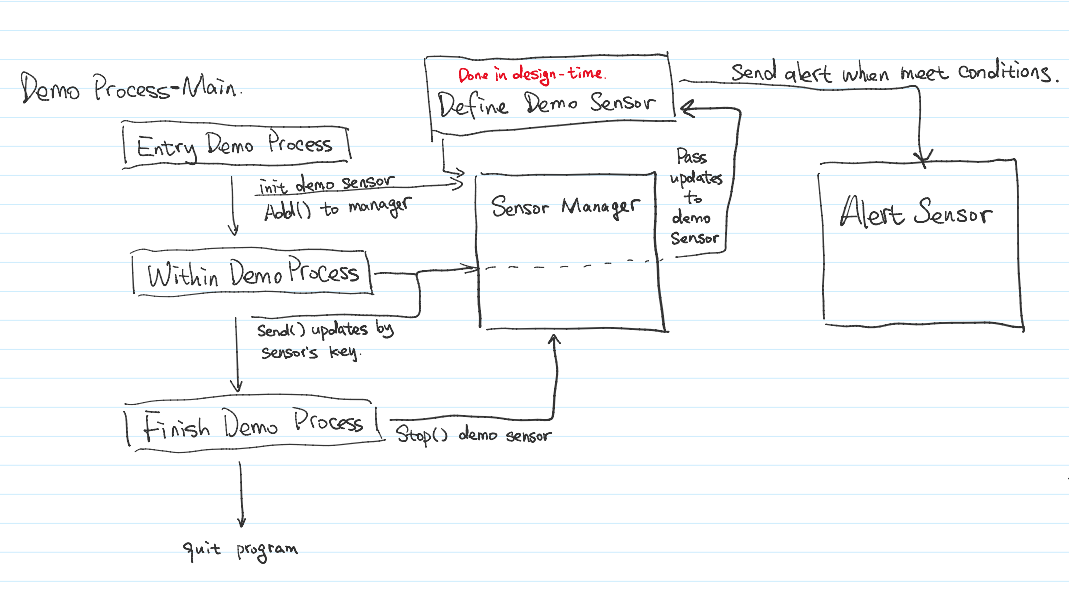 Demo Process-Main.
Done in design-time.
Define Demo Sensor
Send alert when meet conditions.
Entry Demo Process
init demo sensor
Add() to manager
Sensor Manager
Pass
updates
to
demo
Sensor
Alert Sensor
Within Demo Process
Send() updates by
Sensor's key.
Finish Demo Process
Stop() demo sensor
quit program